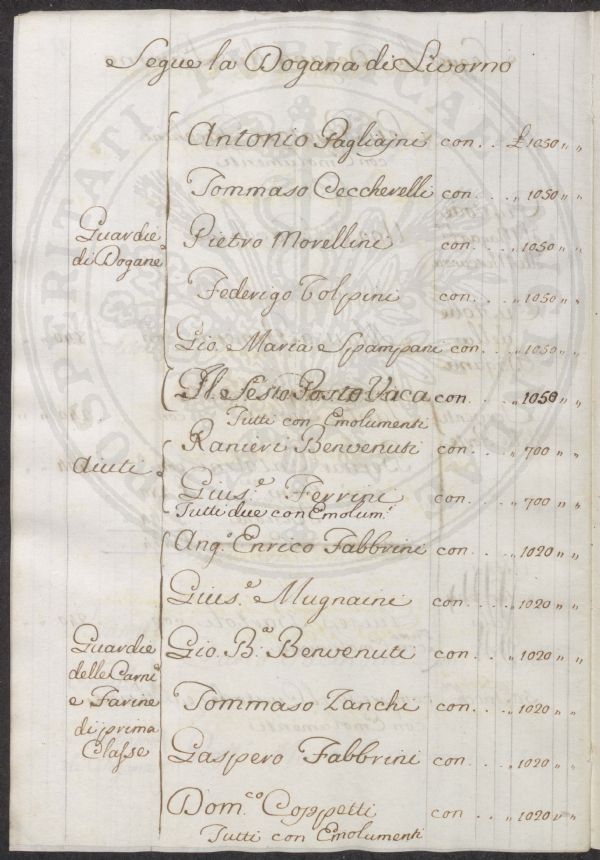 Segue la Dogana di Livorno
Guardie di Dogane
Antonio Pagliajni con . . £ 1050 „ „
Tommaso Ceccherelli con . . . „ 1050 „ „
Pietro Morellini con . . . „ 1050 „ „
Federigo Tolpini con . . . „ 1050 „ „
Gio. Maria Spampani con . . . „ 1050 „ „
Il Sesto Posto Vaca con . . „ 1050 „ „
Tutti con Emolumenti
Aiuti
Ranieri Benvenuti con . . . „ 700 „ „
Gius.e Ferrini con . . . „ 700 „ „
Tutti due con Emolum.i
Guardie
delle Carni
e Farine
di prima
Classe
Ang.o Enrico Fabbrini con . . . „ 1020 „ „
Gius.e Mugnaini con . . . „ 1020 „ „
Gio. B.a Benvenuti con . . . „ 1020 „ „
Tommaso Zanchi con . . . „ 1020 „ „
Gaspero Fabbrini con . . . „ 1020 „ „
Dom.co Coppetti con . . . „ 1020 „ „
Tutti con Emolumenti